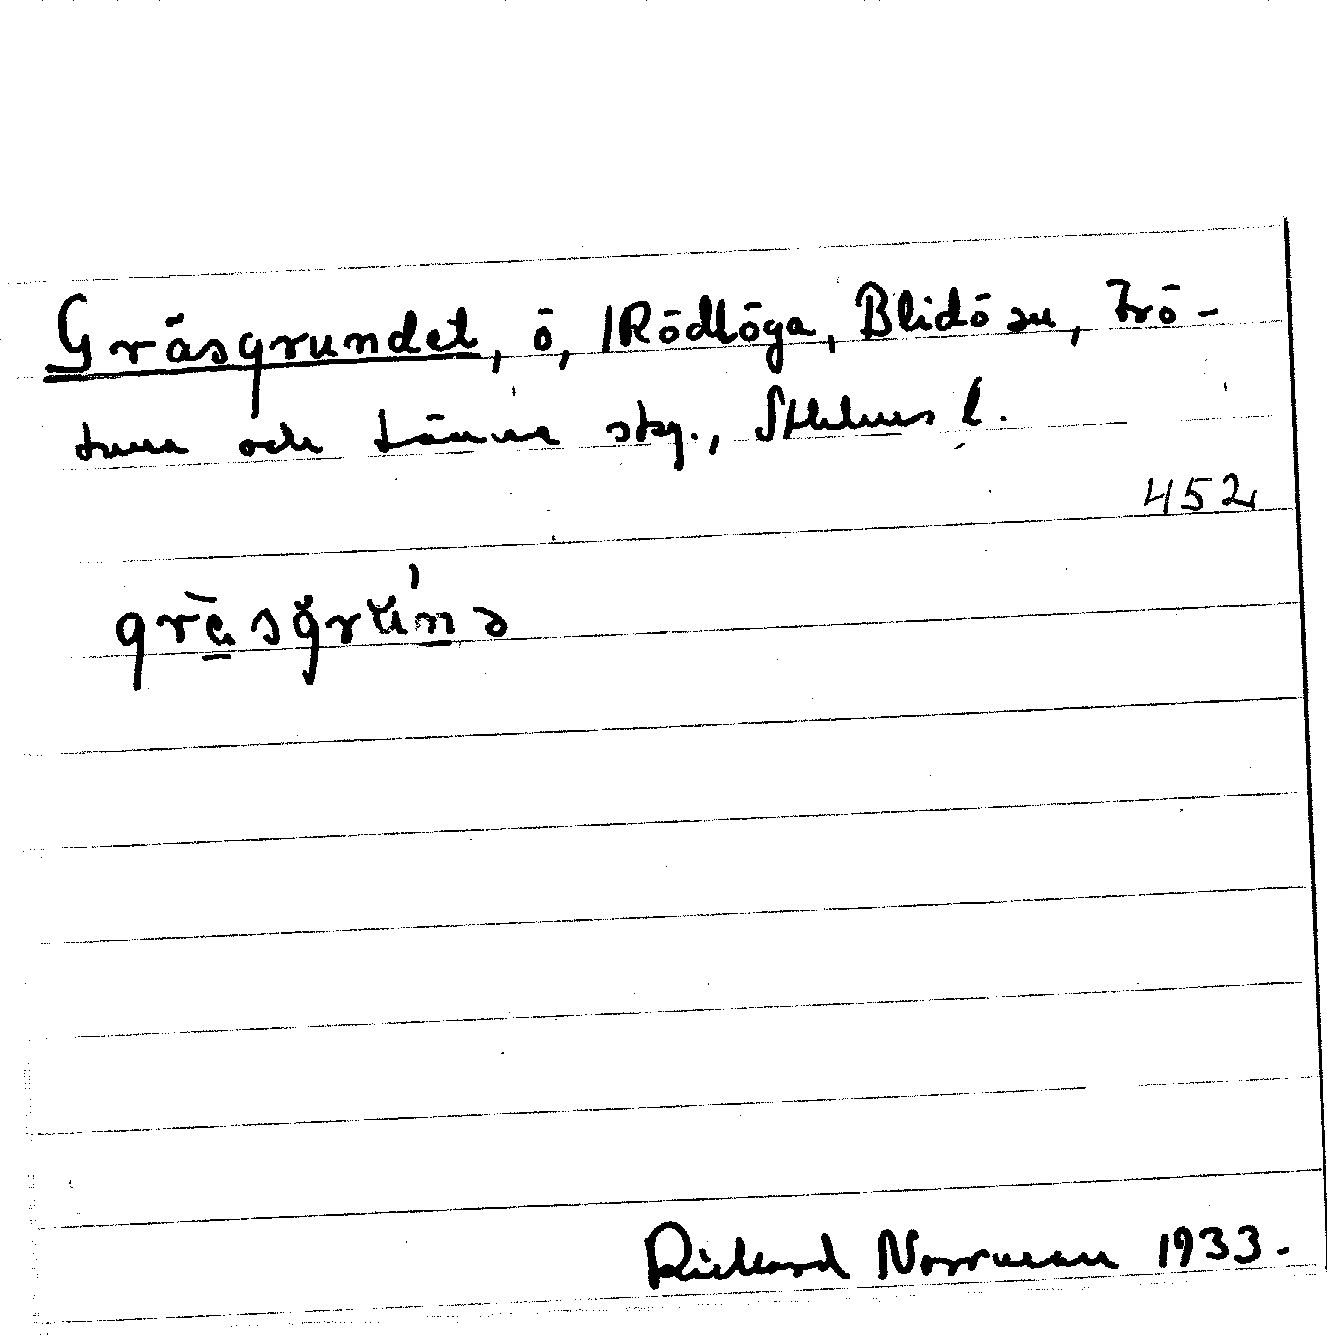 Gräsgrundet, ö, /Rödlöga, Blidö sn, Frö-
tuna och Länna skg., Sthlms l.
452
gre̱sgruṉə
Rickard Norrman 1933.